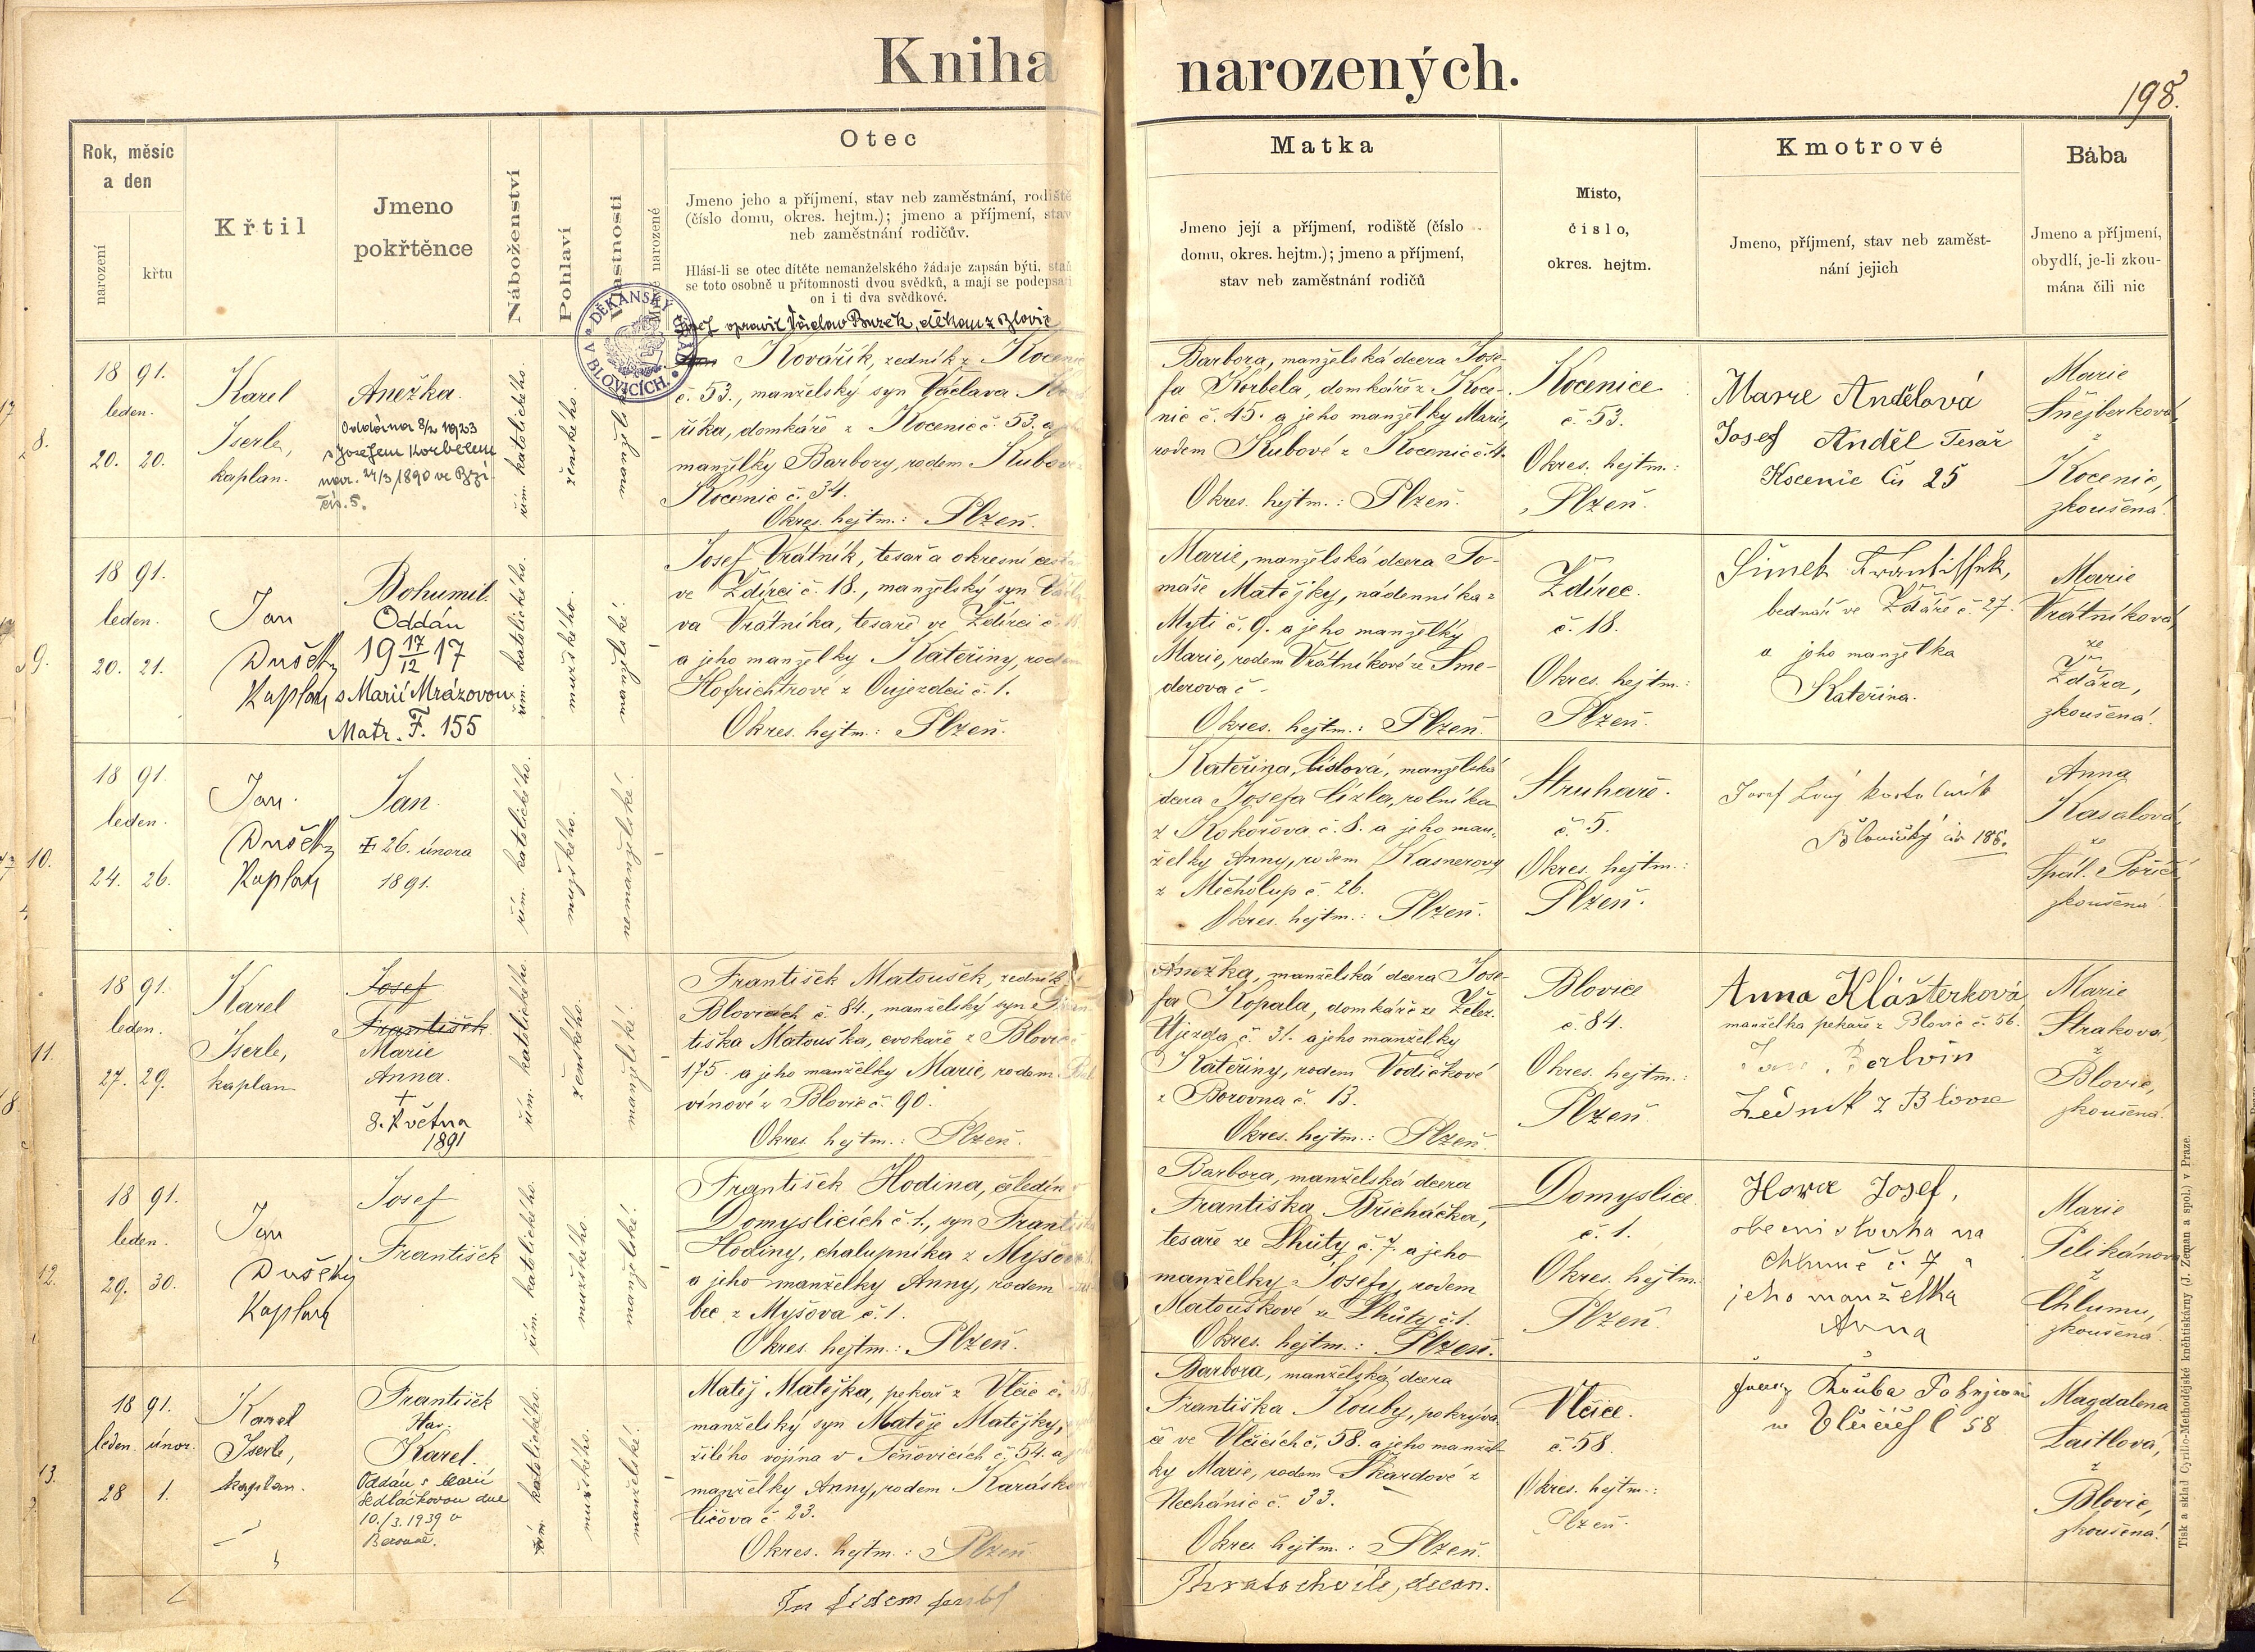 Kniha narozených.
198.
Rok, měsíc
a den
narození
křtu
Křtil
Jmeno
pokřtěnce
Náboženství
Pohlaví
Otec
Jmeno jeho a příjmení, stav neb zaměstnání, rodiště
(číslo domu, okres. hejtm.); jmeno a příjmení, stav
neb zaměstnání rodičův.
Hlásí-li se otec dítěte nemanželského žádaje zapsán býti, staň
se toto osobně u přítomnosti dvou svědků, a mají se podepsati
on i ti dva svědkové.
Matka
Jmeno její a příjmení, rodiště (číslo
domu, okres. hejtm.); jmeno a příjmení,
stav neb zaměstnání rodičů
Místo,
číslo,
okres. hejtm.
Kmotrové
Jmeno, příjmení, stav neb zaměst-
nání jejich
Bába
Jmeno a příjmení,
obydlí, je-li zkou-
mána čili nic
DĚKANSKÝ ÚŘAD
V BLOVICÍCH
opravil Václav Buzek, děkan z Blovic
8.
18 91.
leden.
20. 20.
Karel
Iserle,
kaplan.
Anežka.
Oddána 8/2 1923
s Josefem Korbelem
nar. 24/3 1890 ve Bzí
čís. 5.
řím. katolického.
ženského.
Kovářík, zedník z
č. 53., manželský syn Václava
říka, domkáře z Kocenic č. 53. a
manželky Barbory, rodem
Kocenic č. 34.
Okres. hejtm.: Plzeň.
Barbora, manželská dcera Jose-
fa Korbela, domkáře z Koce-
nic č. 45. a jeho manželky Marie,
rodem Kubové z Kocenic č. 4.
Okres. hejtm.: Plzeň.
Kocenice
č. 53.
Okres. hejtm.:
Plzeň.
Marie Andělová
Josef Anděl Tesař
Kocenic čís 25
Marie
Šnejberková,
z
Kocenic,
zkoušená.
9.
18 91.
leden.
20. 21.
Jan
Dušek
Kaplan
Bohumil.
Oddán
19 17/12 17
s Marií Mrázovou
Matr. F. 155
řím. katolického.
mužského.
manželské.
Josef Vrátník, tesař a okresní
ve Ždírci č. 18., manželský syn
va Vrátníka, tesaře ve Ždírci č.
a jeho manželky Kateřiny, rodem
Hofrichtrové z Oujezdu č. 1.
Okres. hejtm.: Plzeň.
Marie, manželská dcera To-
máše Matějky, nádenníka z
Mýti č. 9. a jeho manželky
Marie, rodem Vrátníkové ze Sme-
derova č -
Okres. hejtm.: Plzeň.
Ždírec.
č. 18.
Okres. hejtm.:
Plzeň.
Šimek
bednář ve Žďáře č. 27.
a jeho manželka
Kateřina.
Marie
Vrátníková,
ze
Žďára,
zkoušená.
10.
18 91.
leden.
24. 26.
Jan
Dušek
Kaplan
Jan.
† 26. února
1891.
řím. katolického.
mužského.
nemanželské.
Kateřina, Císlová, manželská
dcera Josefa Cízla, rolníka
z Kokořova č. 8. a jeho man-
želky Anny, rodem Kasnerovy
z Měcholup č. 26.
Okres. hejtm.: Plzeň.
Struhaře.
č. 5.
Okres. hejtm.:
Plzeň.
Josef
čis 186.
Anna
Kasalová,
ze
Spál. Poříčí,
zkoušená
11.
18 91.
leden.
27. 29.
Karel
Iserle,
kaplan
Josef
František
Marie
Anna.
†
8. Května
1891
řím. katolického.
ženského.
manželské.
František Matoušek, zedník
Blovicích č. 84., manželský syn
tiška Matouška, cvokaře z Blovic
175. a jeho manželky Marie, rodem
vínové z Blovic č. 90.
Okres. hejtm.: Plzeň.
Anežka, manželská dcera Jose-
fa Kopala, domkáře ze Želez.
Újezda č. 31. a jeho manželky
Kateřiny, rodem Vodičkové
z Borovna č. 13.
Okres. hejtm.: Plzeň.
Blovice
č. 84.
Okres. hejtm.:
Plzeň.
Anna Klášterková
manželka pekaře z Blovic č. 56.
Zedník z Blovic
Marie
Straková,
z
Blovic,
zkoušená.
12.
18 91.
leden.
29. 30.
Jan
Dušek
Kaplan
Josef
František
řím. katolického.
mužského.
manželské.
František Hodina, čeledín
Domyslicích č. 1., syn Františka
Hodiny, chalupníka z
a jeho manželky Anny, rodem
bec z Myšova č. 1.
Okres. hejtm.: Plzeň.
Barbora, manželská dcera
Františka Břicháčka,
tesaře ze Lhůty č. 7. a jeho
manželky Josefy, rodem
Matouškové ze Lhůty č. 1.
Okres. hejtm.: Plzeň.
Domyslice.
č. 1.
Okres. hejtm.
Plzeň.
Josef,
na
č. 7 a
jeho manželka
Anna
Marie
Pelikánová
z
Chlumu,
zkoušená.
13.
18 91.
leden. únor.
28 1.
Karel
Iserle,
kaplan.
František
Karel.
Oddán s Marií
Sedláčkovou dne
10./3. 1939 v
Berouně.
řím. katolického.
mužského.
manželské.
Matěj Matějka, pekař z Vlčic č. 58
manželský syn Matěje Matějky,
žilého vojína v č. 54. a
manželky Anny, rodem
č. 23.
Okres. hejtm.: Plzeň
Barbora, manželská dcera
Františka Kouby, pokrýva-
če ve Vlčicích č. 58. a jeho manžel-
ky Marie, rodem Škardové z
Nechánic č. 33.
Okres. hejtm.: Plzeň.
Vlčice.
č. 58.
Okres. hejtm.:
Plzeň.
Kouba
58
Magdalena
Laitlová,
z
Blovic,
zkoušená.
In fidem
decan.
Tisk a sklad Cyrillo-Methodějské knéhtiskárny (J. Zeman a spol.) v Praze.